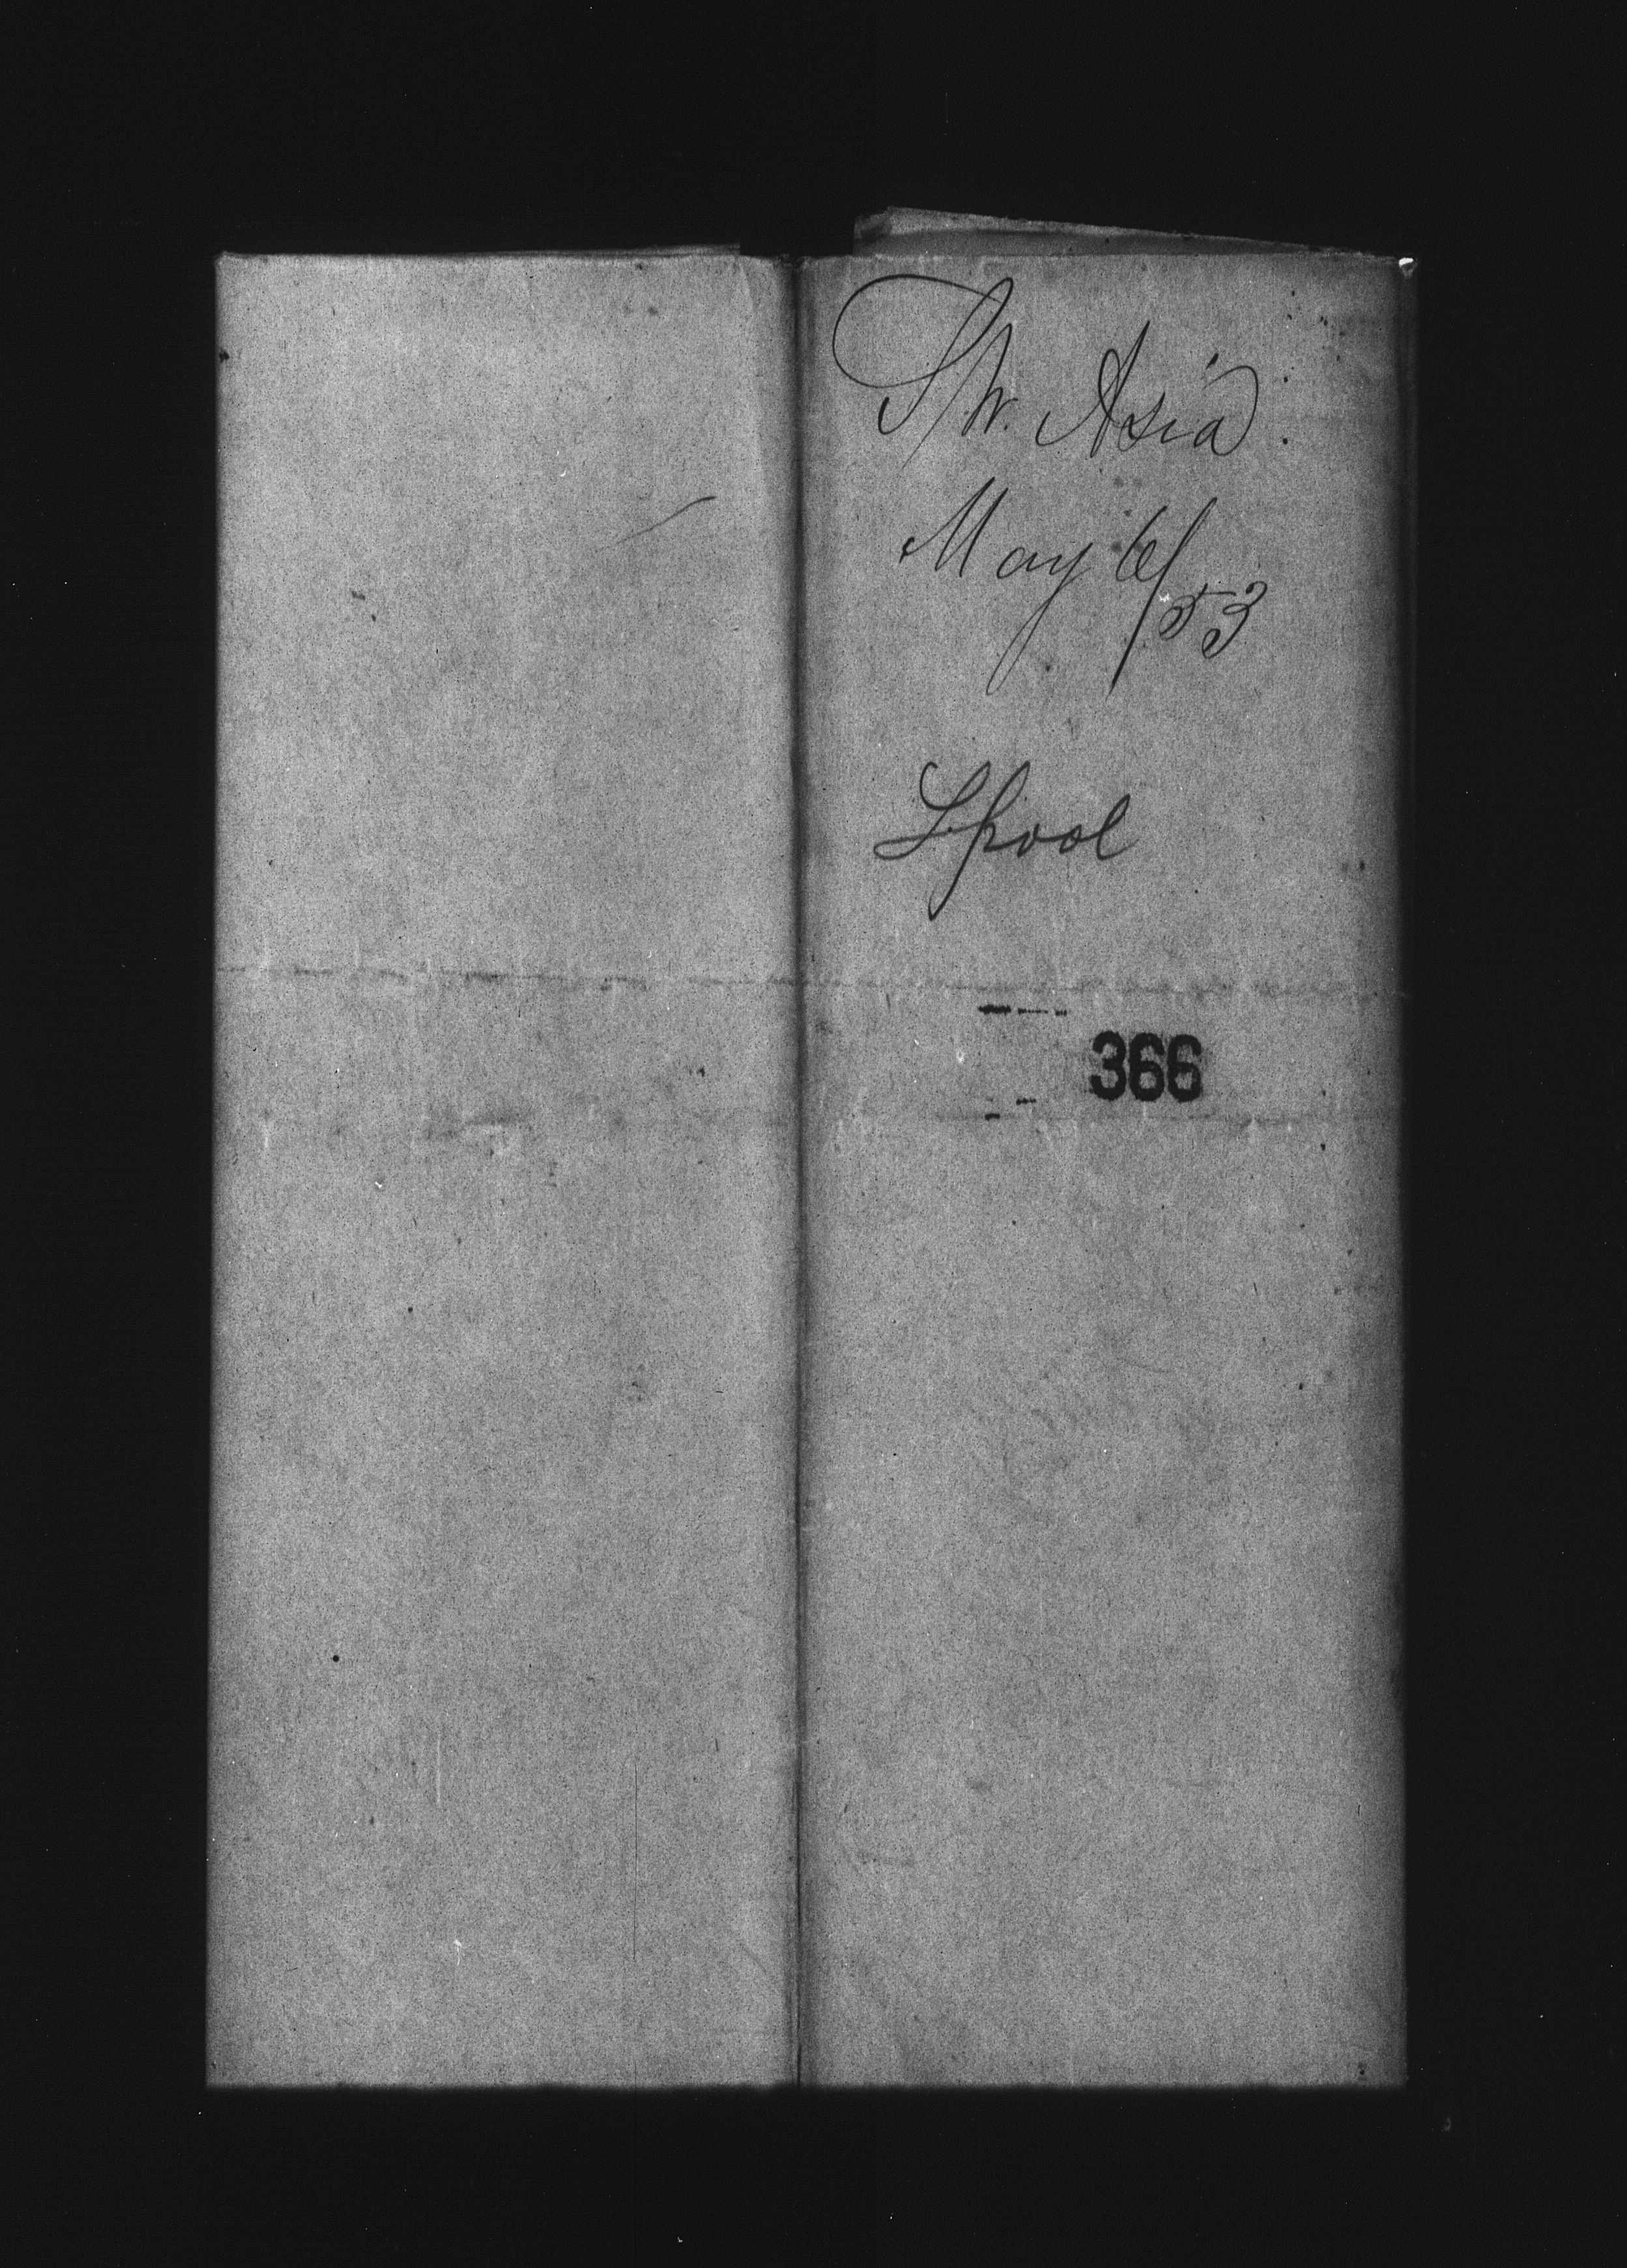 Str. Asia.
May 6/53
Lpool
366